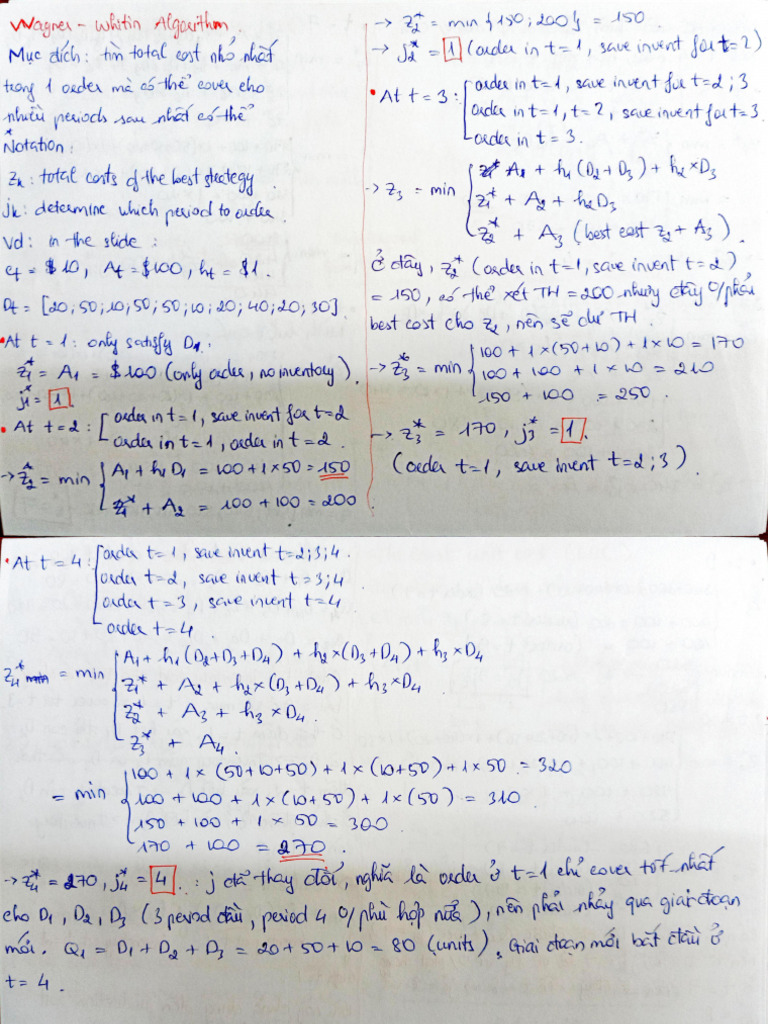 Wagner - Whitin Algorithm
Mục đích: tìm total cost nhỏ nhất
trong 1 order mà có thể cover cho
nhiều periods sau nhất có thể
* Notation:
Zk: total costs of the best strategy.
jk: determine which period to order.
Vd: in the slide:
ct = $10, At = $100, ht = $1.
Dt = [20; 50; 10; 50; 50; 10; 20; 40; 20; 30].
• At t = 1: only satisfy D1.
Z1* = A1 = $100 (only order, no inventory).
j1* = 1.
• At t = 2: { order in t = 1, save invent for t = 2
order in t = 1, order in t = 2.
→ Z2* = min { A1 + h1 D1 = 100 + 1 × 50 = 150
Z1* + A2 = 100 + 100 = 200
→ Z2* = min {150; 200} = 150.
→ j2* = 1 (order in t = 1, save invent for t = 2)
• At t = 3: { order in t = 1, save invent for t = 2; 3
order in t = 1, t = 2, save invent for t = 3.
order in t = 3.
→ Z3 = min { A1 + h1 (D2 + D3) + h2 × D3
Z1* + A2 + h2 D3
Z2* + A3 (best cost Z2 + A3).
Ở đây, Z2* (order in t = 1, save invent t = 2)
= 150, có thể xét TH = 200 nhưng đây 0/phải
best cost cho Z2, nên sẽ dư TH.
→ Z3* = min { 100 + 1 × (50 + 10) + 1 × 10 = 170
100 + 100 + 1 × 10 = 210
150 + 100 = 250.
→ Z3* = 170, j3* = 1.
(order t = 1, save invent t = 2; 3).
• At t = 4: { order t = 1, save invent t = 2; 3; 4.
order t = 2, save invent t = 3; 4
order t = 3, save invent t = 4
order t = 4
Z4* = min { A1 + h1 (D2 + D3 + D4) + h2 × (D3 + D4) + h3 × D4
Z1* + A2 + h2 × (D3 + D4) + h3 × D4
Z2* + A3 + h3 × D4
Z3* + A4
= min { 100 + 1 × (50 + 10 + 50) + 1 × (10 + 50) + 1 × 50 = 320
100 + 100 + 1 × (10 + 50) + 1 × (50) = 310
150 + 100 + 1 × 50 = 300
170 + 100 = 270.
→ Z4* = 270, j4* = 4. : j đã thay đổi, nghĩa là order ở t = 1 chỉ cover tốt nhất
cho D1, D2, D3 (3 period đầu, period 4 0/phù hợp nữa), nên phải nhảy qua giai đoạn
mới. Q1 = D1 + D2 + D3 = 20 + 50 + 10 = 80 (units), Giai đoạn mới bắt đầu ở
t = 4.